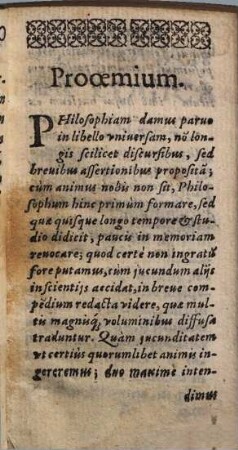 Prooemium.
PHilosophiam damus paruo
in libello vniuersam, nō lon-
gis scilicet discursibus, sed
breuibus assertionibus propositā;
cùm animus nobis non sit, Philo-
sophum hinc primum formare, sed
quæ quisque longo tempore & stu-
dio didicit, paucis in memoriam
reuocare; quod certè non ingratū
fore putamus, cùm jucundum alijs
in scientijs accidat, in breue com-
pēdium redacta videre, quæ mul-
tis magnisq́; voluminibus diffusa
traduntur. Quàm jucunditatem
vt certiùs quorumlibet animis in-
gereremus; duo maximè inten-
dimus